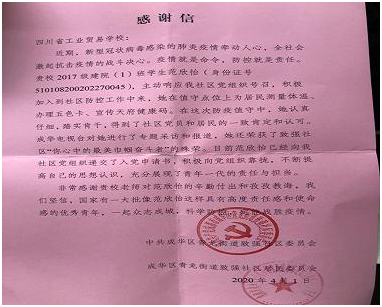 感谢信
四川省工业贸易学校：
近期，新型冠状病毒感染的肺炎疫情牵动人心，全社会
激起抗击疫情的战斗决心。疫情就是命令，防控就是责任。
贵校2017级建院（1）班学生范欣怡（身份证号
510108200202270045），主动响应我社区党组织号召，积极
加入到社区防控工作中来，她在值守点位上为居民测量体温、
办理五色卡、宣传天府健康码。在这次防疫值守中，她认真
仔细，踏实肯干，得到了社区党员和居民的一致肯定和认可。
成华电视台对她进行了专题采访和报道，她还荣获了致强社
区“你心中的最美巾帼奋斗者”的殊荣。目前范欣怡已经向我
社区党组织递交了入党申请书，积极向党组织靠拢，不断提
高自己的思想认识，充分展现了青年一代的责任与担当。
非常感谢贵校老师对范欣怡的辛勤付出和孜孜教诲，我
们坚信，国家有一大批像范欣怡这样具有高度责任感和使命
感的优秀青年，一起众志成城，科学防控，战胜疫情。
中共成华区青龙街道致强社区委员会
成华区青龙街道致强社区居民委员会
2020年4月1日